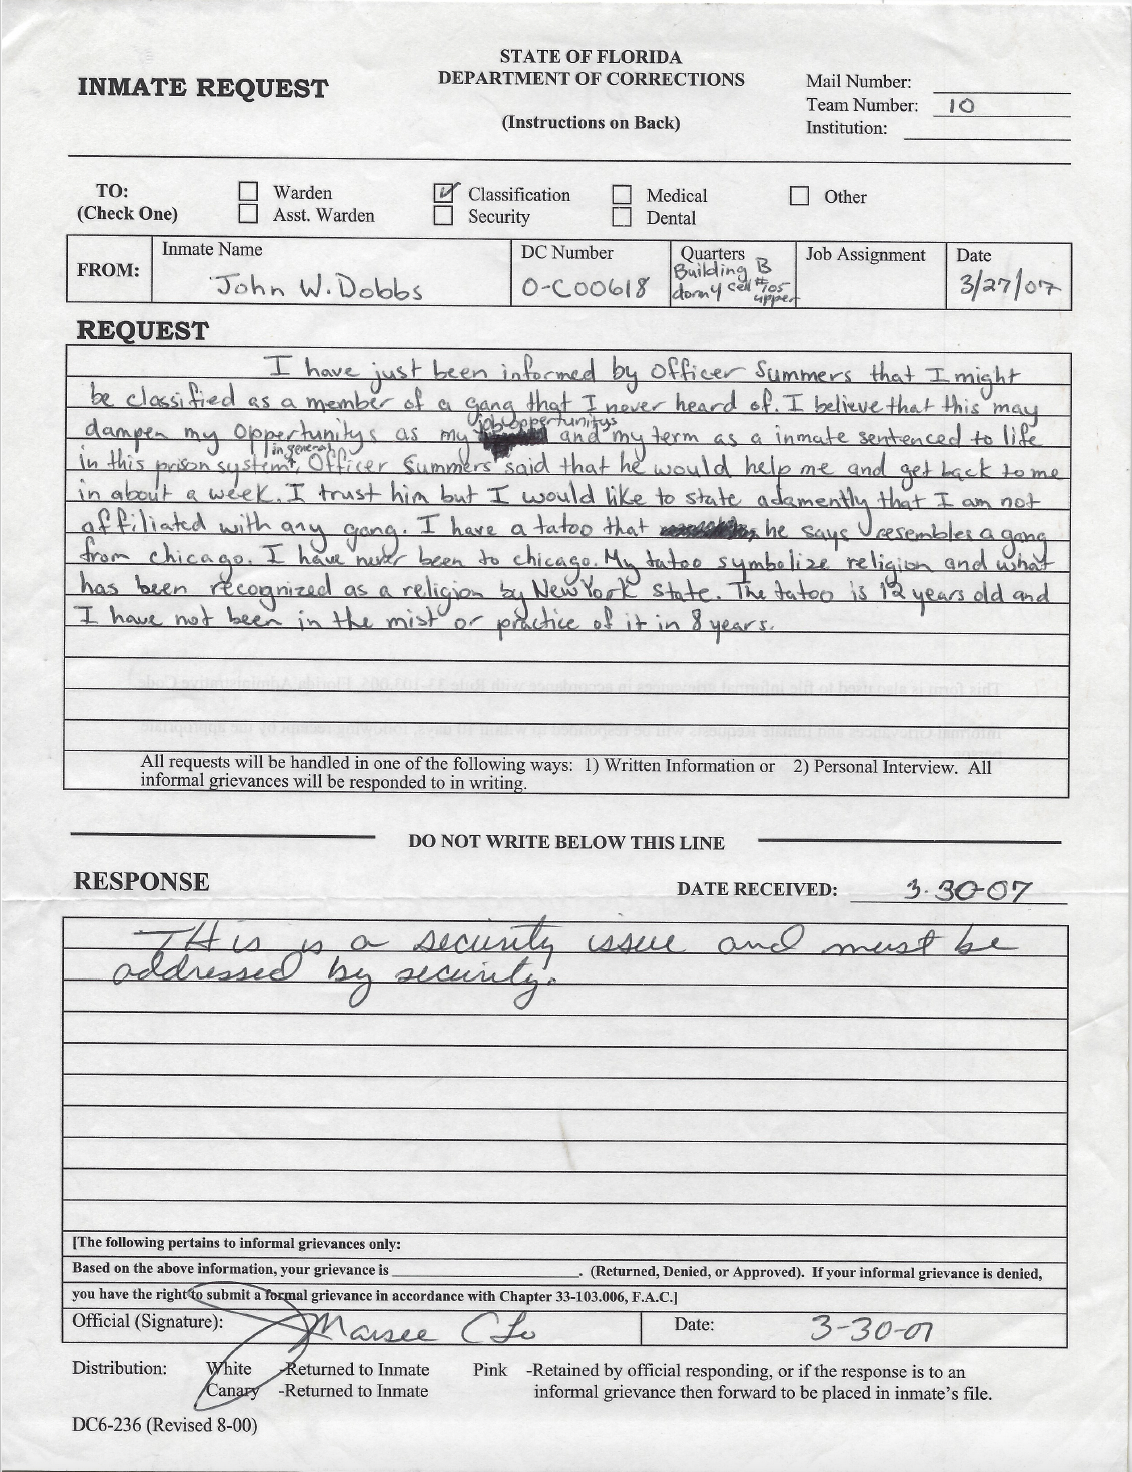 STATE OF FLORIDA
DEPARTMENT OF CORRECTIONS
INMATE REQUEST
(Instructions on Back)
Mail Number:
Team Number: 10
Institution:
TO:
(Check One)
Warden
Classification
Medical
Other
Asst. Warden
Security
Dental
FROM:
Inmate Name
John W. Dobbs
DC Number
O-C00618
Quarters
Building B
dorm y cell #105
upper
Job Assignment
Date
3/27/07
REQUEST
I have just been informed by Officer Summers that I might
be classified as a member of a gang that I never heard of. I believe that this may
dampen my Oppertunitys as my job oppertunitys and my term as a inmate sentenced to life
in this prison system, in general, Officer Summers said that he would help me and get back to me
in about a week. I trust him but I would like to state adamently that I am not
affiliated with any gang. I have a tatoo that he says resembles a gang
from chicago. I have never been to chicago. My tatoo symbolize religion and what
has been recognized as a religion by New York State. The tatoo is 12 years old and
I have not been in the mist or practice of it in 8 years.
All requests will be handled in one of the following ways: 1) Written Information or 2) Personal Interview. All
informal grievances will be responded to in writing.
DO NOT WRITE BELOW THIS LINE
RESPONSE
DATE RECEIVED: 3-30-07
THis is a security issue and must be
addressed by security.
[The following pertains to informal grievances only:
Based on the above information, your grievance is ______. (Returned, Denied, or Approved). If your informal grievance is denied,
you have the right to submit a formal grievance in accordance with Chapter 33-103.006, F.A.C.]
Official (Signature):
Date: 3-30-07
Distribution: White -Returned to Inmate Pink -Retained by official responding, or if the response is to an
Canary -Returned to Inmate informal grievance then forward to be placed in inmate's file.
DC6-236 (Revised 8-00)